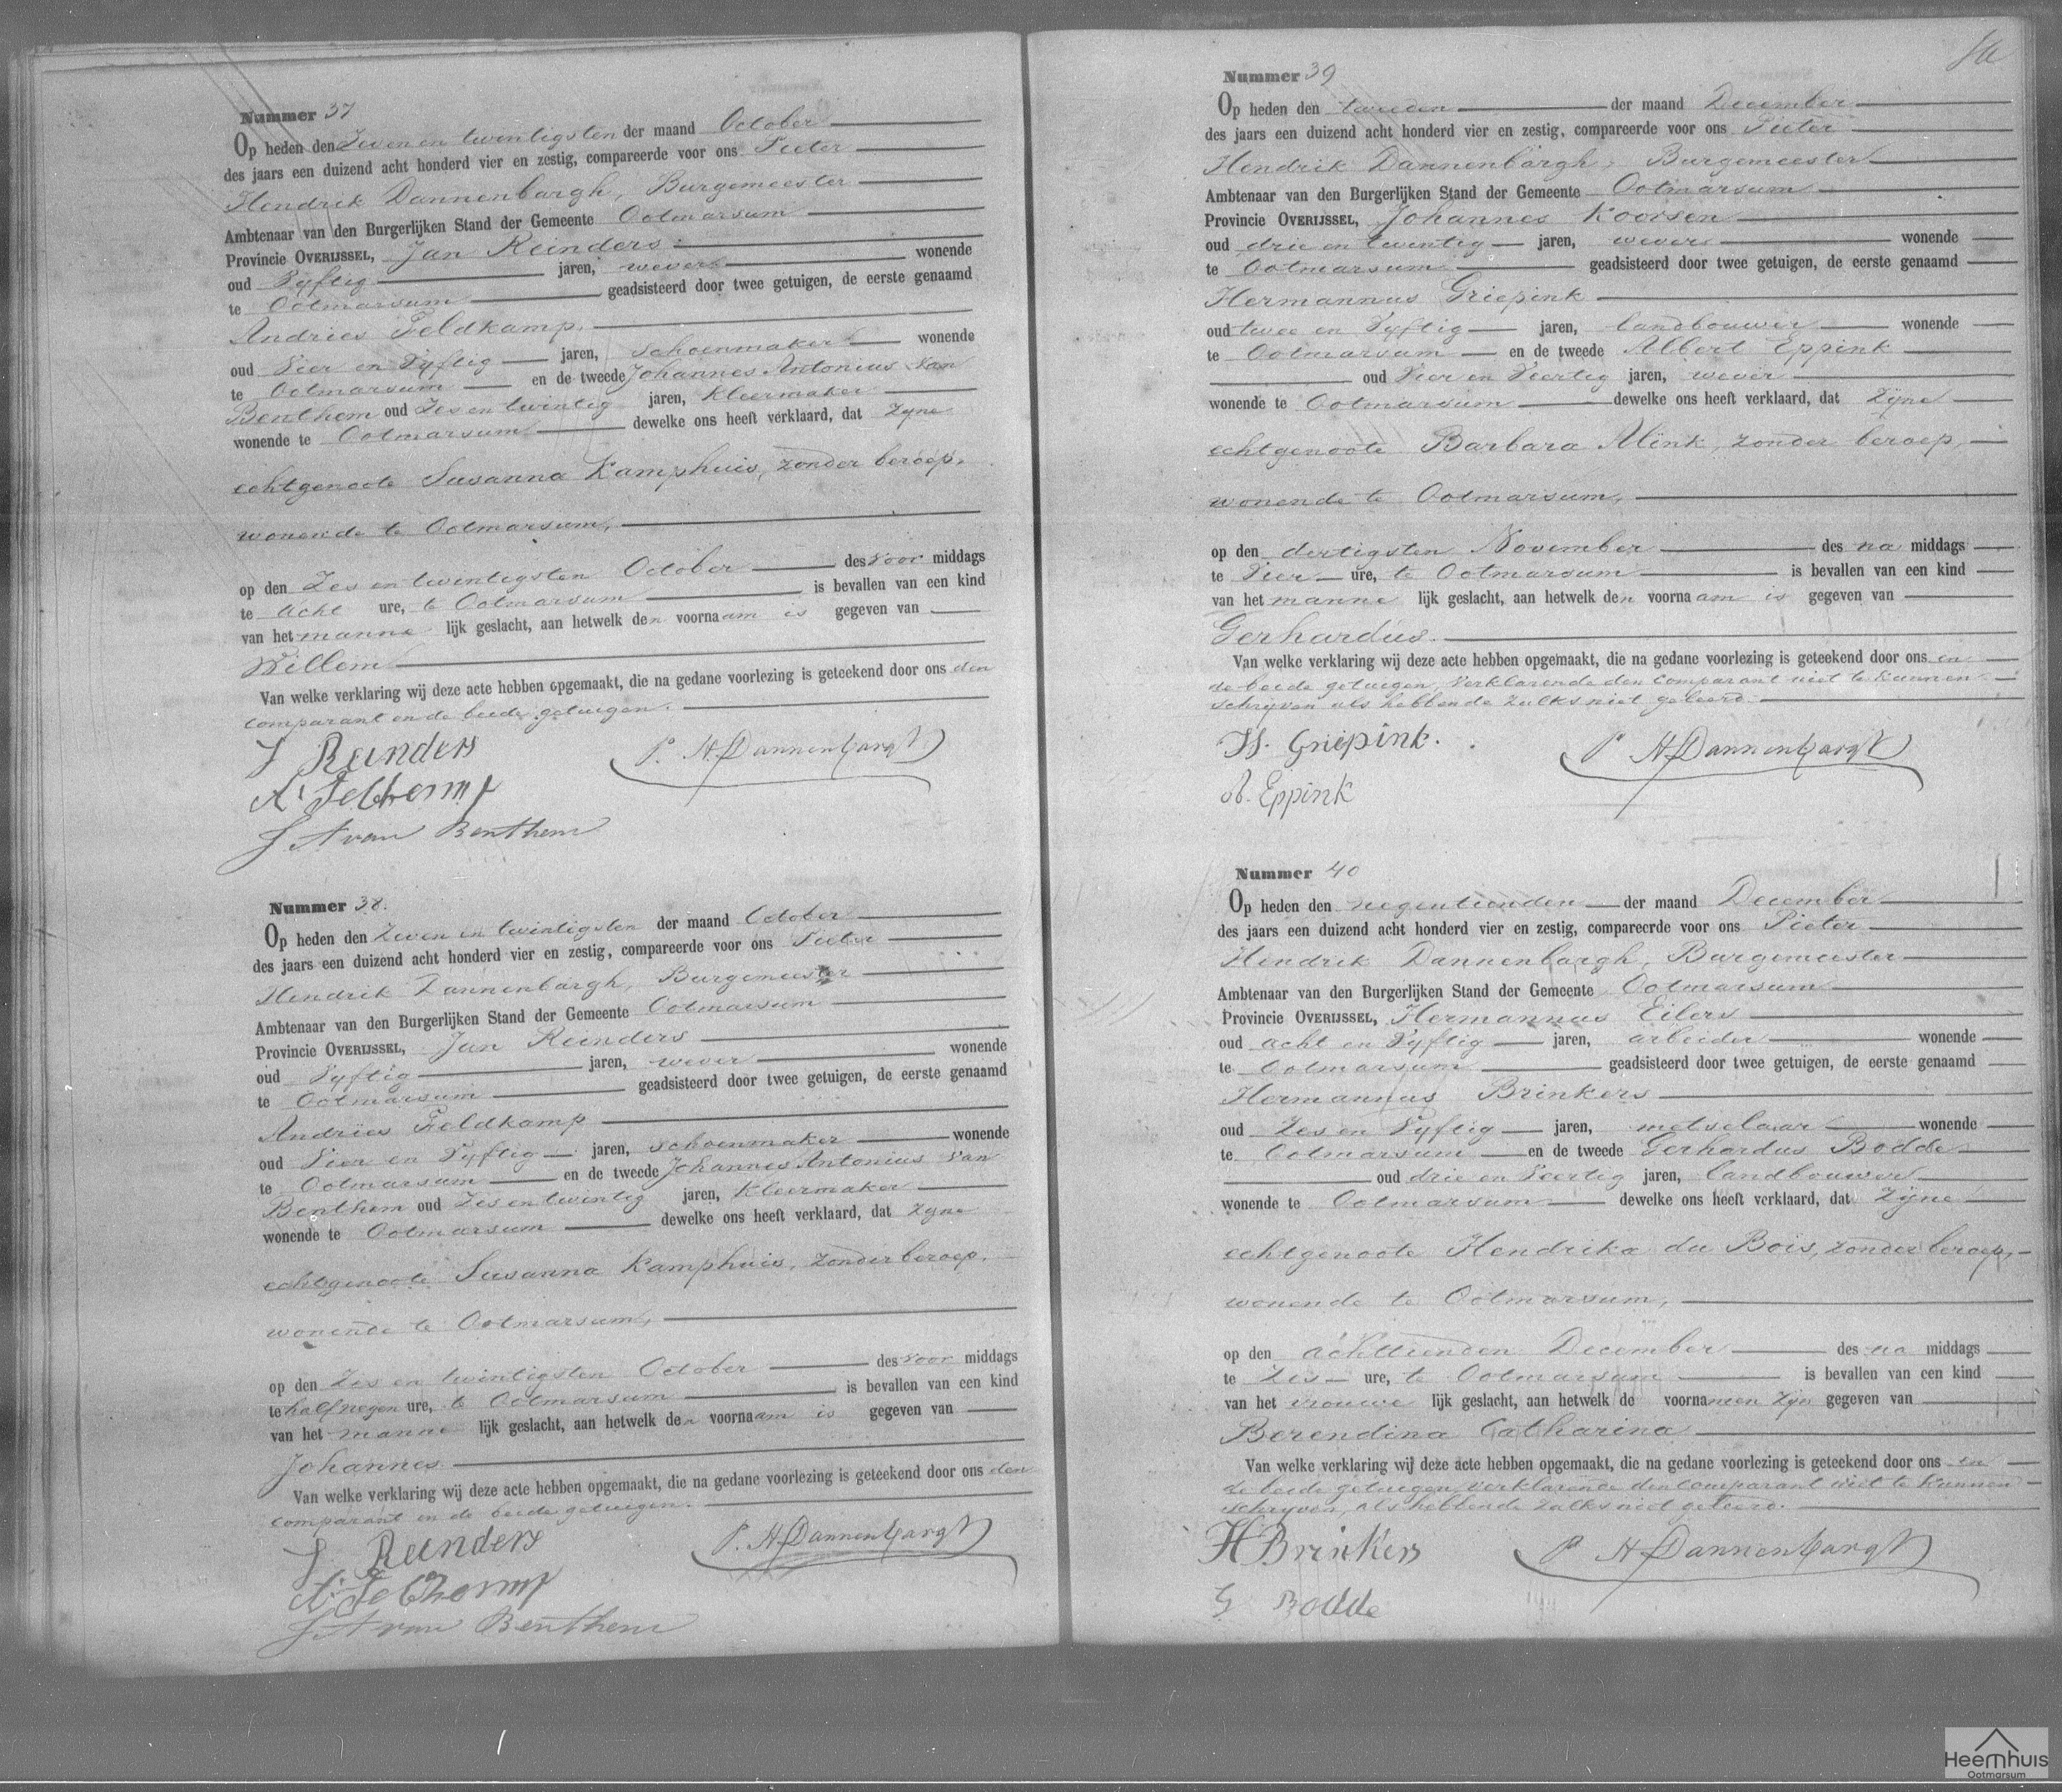 Nummer 37
Op heden den Zeven en twintigsten der maand October
des jaars een duizend acht honderd vier en zestig, compareerde voor ons Pieter
Hendrik Dannenbargh, Burgemeester
Ambtenaar van den Burgerlijken Stand der Gemeente Ootmarsum
Provincie OVERIJSSEL, Jan Reinders
oud Vyftig jaren, wever wonende
te Ootmarsum geadsisteerd door twee getuigen, de eerste genaamd
Andries Feldkamp
oud Vier en Vyftig jaren, schoenmaker wonende
te Ootmarsum en de tweede Johannes Antonius Van
Benthem oud Zes en twintig jaren, Kleermaker
wonende te Ootmarsum dewelke ons heeft verklaard, dat Zyne
echtgenoote Susanna Kamphuis, zonder beroep,
wonende te Ootmarsum,
op den Zes en twintigsten October des voor middags
te Acht ure, te Ootmarsum is bevallen van een kind
van het manne lijk geslacht, aan hetwelk den voornaam is gegeven van
Willem
Van welke verklaring wij deze acte hebben opgemaakt, die na gedane voorlezing is geteekend door ons den
comparant en de beide getuigen.
J Reinders P. H. Dannenbargh
A. Feldkamp
J A van Benthem
Nummer 38.
Op heden den Zeven en twintigsten der maand October
des jaars een duizend acht honderd vier en zestig, compareerde voor ons Pieter
Hendrik Dannenbargh, Burgemeester
Ambtenaar van den Burgerlijken Stand der Gemeente Ootmarsum
Provincie OVERIJSSEL, Jan Reinders
oud Vyftig jaren, wever wonende
te Ootmarsum geadsisteerd door twee getuigen, de eerste genaamd
Andries Feldkamp
oud Vier en Vyftig jaren, schoenmaker wonende
te Ootmarsum en de tweede Johannes Antonius Van
Benthem oud Zes en twintig jaren, Kleermaker
wonende te Ootmarsum dewelke ons heeft verklaard, dat Zyne
echtgenoote Susanna Kamphuis, zonder beroep,
wonende te Ootmarsum,
op den Zes en twintigsten October des voor middags
te half negen ure, te Ootmarsum is bevallen van een kind
van het manne lijk geslacht, aan hetwelk den voornaam is gegeven van
Johannes
Van welke verklaring wij deze acte hebben opgemaakt, die na gedane voorlezing is geteekend door ons den
comparant en de beide getuigen.
J Reinders P. H. Dannenbargh
A. Feldkamp
J A van Benthem
Nummer 39
Op heden den tweeden der maand December
des jaars een duizend acht honderd vier en zestig, compareerde voor ons Pieter
Hendrik Dannenbargh, Burgemeester
Ambtenaar van den Burgerlijken Stand der Gemeente Ootmarsum
Provincie OVERIJSSEL, Johannes Koorsen
oud drie en twintig jaren, wever wonende
te Ootmarsum geadsisteerd door twee getuigen, de eerste genaamd
Hermannus Griepink
oud twee en Vyftig jaren, landbouwer wonende
te Ootmarsum en de tweede Albert Eppink
oud Vier en Veertig jaren, wever
wonende te Ootmarsum dewelke ons heeft verklaard, dat Zyne
echtgenoote Barbara Alink, zonder beroep,
wonende te Ootmarsum,
op den dertigsten November des na middags
te Vier ure, te Ootmarsum is bevallen van een kind
van het manne lijk geslacht, aan hetwelk den voornaam is gegeven van
Gerhardus.
Van welke verklaring wij deze acte hebben opgemaakt, die na gedane voorlezing is geteekend door ons en
de beide getuigen, verklarende den comparant niet te kunnen
schryven als hebbende zulks niet geleerd.
H. Griepink. P H Dannenbargh
A. Eppink
Nummer 40
Op heden den negentienden der maand December
des jaars een duizend acht honderd vier en zestig, compareerde voor ons Pieter
Hendrik Dannenbargh, Burgemeester
Ambtenaar van den Burgerlijken Stand der Gemeente Ootmarsum
Provincie OVERIJSSEL, Hermannus Eilers
oud acht en Vyftig jaren, arbeider wonende
te Ootmarsum geadsisteerd door twee getuigen, de eerste genaamd
Hermannus Brinkers
oud Zes en Vyftig jaren, metselaar wonende
te Ootmarsum en de tweede Gerhardus Bodde
oud drie en Veertig jaren, landbouwer
wonende te Ootmarsum dewelke ons heeft verklaard, dat Zyne
echtgenoote Hendrika du Bois, zonder beroep,
wonende te Ootmarsum,
op den achttienden December des na middags
te Zes ure, te Ootmarsum is bevallen van een kind
van het vrouwe lijk geslacht, aan hetwelk de voornamen zyn gegeven van
Berendina Catharina
Van welke verklaring wij deze acte hebben opgemaakt, die na gedane voorlezing is geteekend door ons en
de beide getuigen, verklarende den comparant niet te kunnen
schryven, als hebbende zulks niet geleerd.
H Brinkers P H Dannenbargh
G Bodde
Heemhuis
Ootmarsum